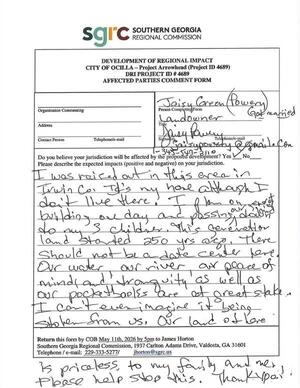 sgrc SOUTHERN GEORGIA
REGIONAL COMMISSION
DEVELOPMENT OF REGIONAL IMPACT
CITY OF OCILLA – Project Arrowhead (Project ID 4689)
DRI PROJECT ID # 4689
AFFECTED PARTIES COMMENT FORM
Jaisy Green (Powery)
Organization Commenting
Person Completing Form
got married
Landowner
Address
Powery
Contact Person Telephone/e-mail
Telephone/e-mail
Do you believe your jurisdiction will be affected by the proposed development? Yes ✓ No
Please describe the expected impacts (positive and negative) on your jurisdiction:
I was raised out in this area in
Irwin Co. It's my home although I
don't live there. I plan on
building one day and passing down
to my 3 children. This generation
land started 250 yrs ago. There
should not be a date center here.
Our water, our river, our peace of
mind, and tranquity as well as
our pocketbooks are at great stake.
I can't ever imagine it being
stolen from us. Our land out here
Return this form by COB May 11th, 2026 by 5pm to James Horton
Southern Georgia Regional Commission, 1937 Carlton Adams Drive, Valdosta, GA 31601
Telephone / e-mail: 229-333-5277/ jhorton@sgrc.us
is priceless to my family and me.
Please help stop this.